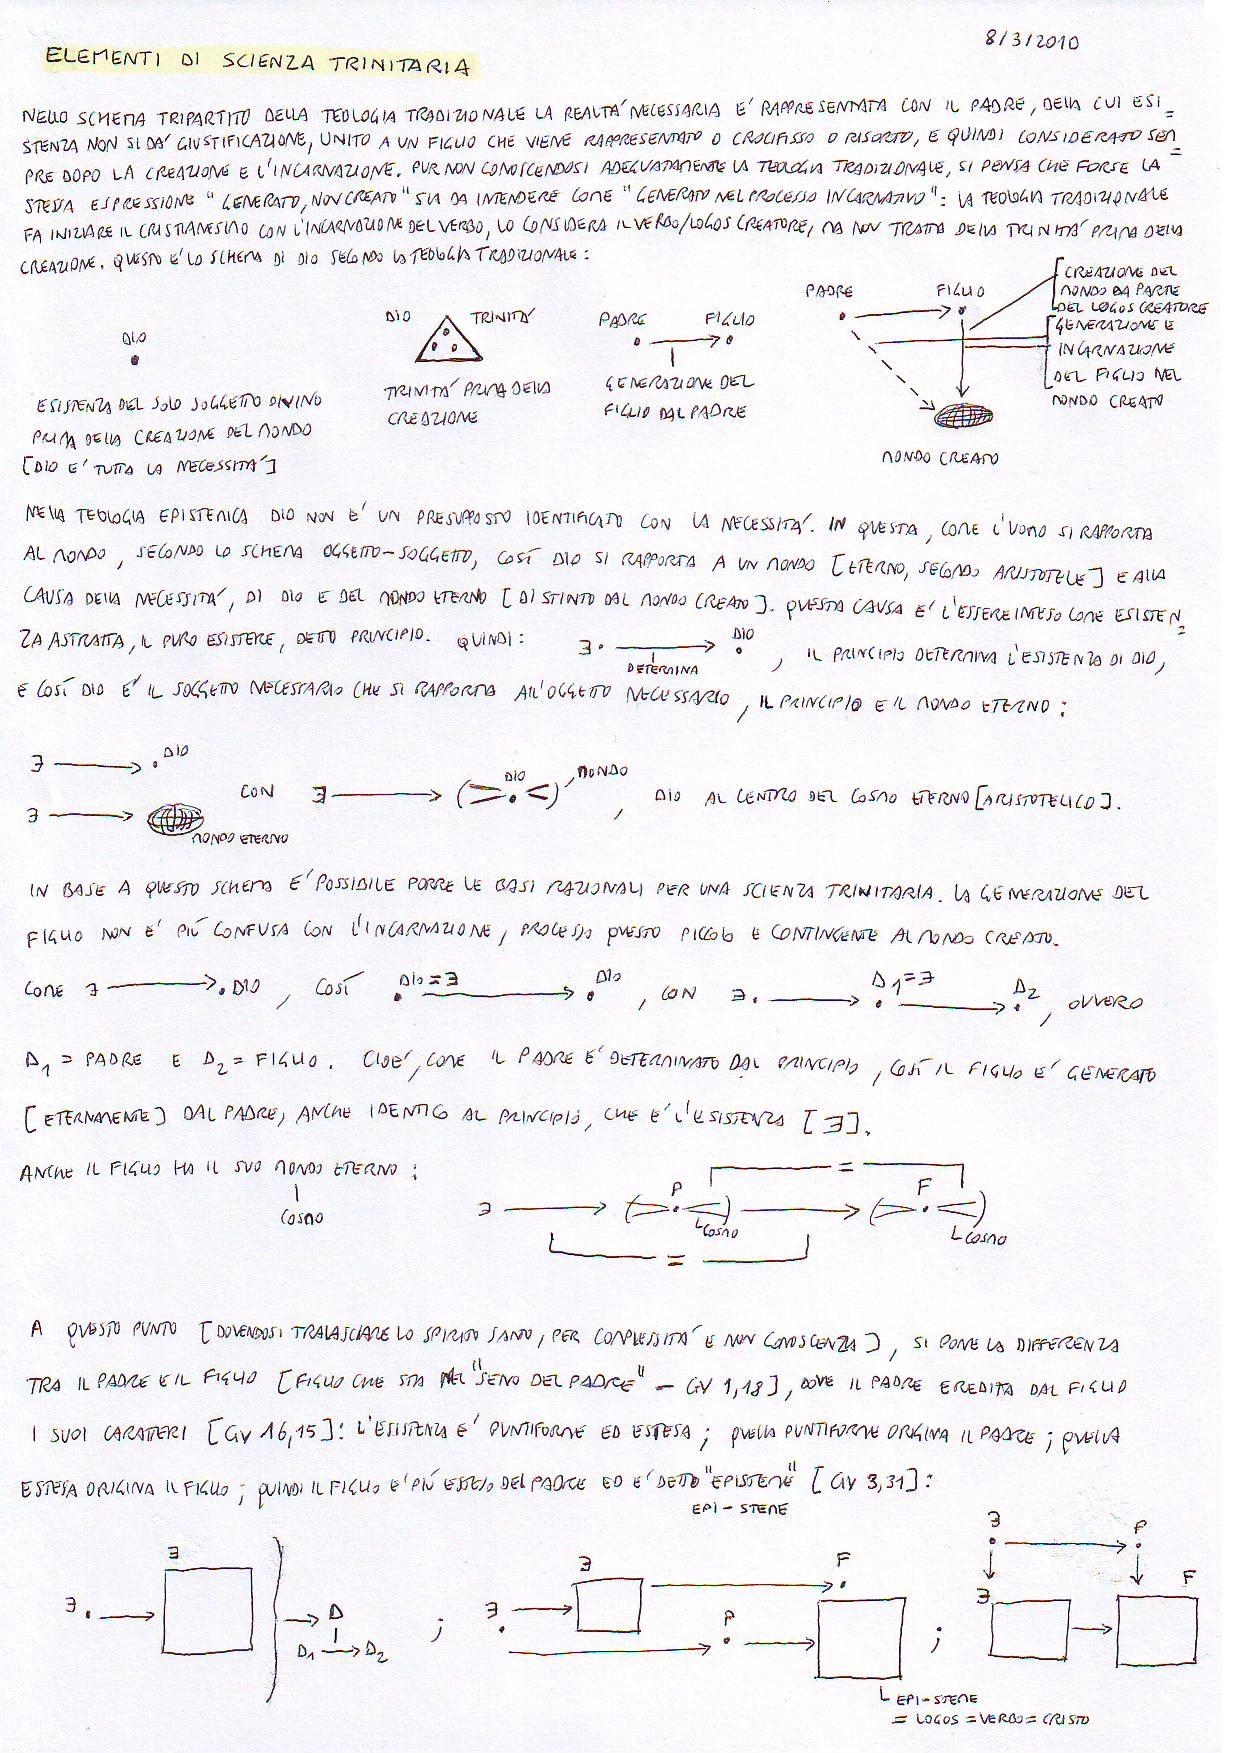 8/3/2010
ELEMENTI DI SCIENZA TRINITARIA
NELLO SCHEMA TRIPARTITO DELLA TEOLOGIA TRADIZIONALE LA REALTÀ NECESSARIA E' RAPPRESENTATA CON IL PADRE, DELLA CUI ESI=
STENZA NON SI DA' GIUSTIFICAZIONE, UNITO A UN FIGLIO CHE VIENE RAPPRESENTATO O CROCIFISSO O RISORTO, E QUINDI CONSIDERATO SEM=
PRE DOPO LA CREAZIONE E L'INCARNAZIONE. PUR NON CONOSCENDOSI ADEGUATAMENTE LA TEOLOGIA TRADIZIONALE, SI PENSA CHE FORSE LA
STESSA ESPRESSIONE "GENERATO, NON CREATO" SIA DA INTENDERE COME "GENERATO NEL PROCESSO INCARNATIVO": LA TEOLOGIA TRADIZIONALE
FA INIZIARE IL CRISTIANESIMO CON L'INCARNAZIONE DEL VERBO, LO CONSIDERA IL VERBO/LOGOS CREATORE, MA NON TRATTA DELLA TRINITA' PRIMA DELLA
CREAZIONE. QUESTO E' LO SCHEMA DI DIO SECONDO LA TEOLOGIA TRADIZIONALE:
DIO
ESISTENZA DEL SOLO SOGGETTO DIVINO
PRIMA DELLA CREAZIONE DEL MONDO
[DIO E' TUTTA LA NECESSITA']
DIO TRINITA'
TRINITA' PRIMA DELLA
CREAZIONE
PADRE FIGLIO
GENERAZIONE DEL
FIGLIO DAL PADRE
PADRE FIGLIO
CREAZIONE DEL
MONDO DA PARTE
DEL LOGOS CREATORE
GENERAZIONE E
INCARNAZIONE
DEL FIGLIO NEL
MONDO CREATO
MONDO CREATO
NELLA TEOLOGIA EPISTEMICA DIO NON E' UN PRESUPPOSTO IDENTIFICATO CON LA NECESSITA'. IN QUESTA, COME L'UOMO SI RAPPORTA
AL MONDO, SECONDO LO SCHEMA OGGETTO-SOGGETTO, COSÌ DIO SI RAPPORTA A UN MONDO [ETERNO, SECONDO ARISTOTELE] E ALLA
CAUSA DELLA NECESSITA', DI DIO E DEL MONDO ETERNO [DISTINTO DAL MONDO CREATO]. QUESTA CAUSA E' L'ESSERE INTESO COME ESISTEN=
ZA ASTRATTA, IL PURO ESISTERE, DETTO PRINCIPIO. QUINDI: ∃. DETERMINA DIO, IL PRINCIPIO DETERMINA L'ESISTENZA DI DIO,
E COSÌ DIO E' IL SOGGETTO NECESSARIO CHE SI RAPPORTA ALL'OGGETTO NECESSARIO, IL PRINCIPIO E IL MONDO ETERNO:
∃ → DIO
∃ → MONDO ETERNO
CON ∃ → DIO, MONDO, DIO AL CENTRO DEL COSMO ETERNO [ARISTOTELICO].
IN BASE A QUESTO SCHEMA E' POSSIBILE PORRE LE BASI RAZIONALI PER UNA SCIENZA TRINITARIA. LA GENERAZIONE DEL
FIGLIO NON E' PIÙ CONFUSA CON L'INCARNAZIONE, PROCESSO QUESTO PICCOLO E CONTINGENTE AL MONDO CREATO.
COME ∃ → . DIO, COSÌ DIO=∃ → DIO, CON ∃. → D1=∃ → D2, OVVERO
D1 = PADRE E D2 = FIGLIO. CIOE', COME IL PADRE E' DETERMINATO DAL PRINCIPIO, COSÌ IL FIGLIO E' GENERATO
[ETERNAMENTE] DAL PADRE, ANCHE IDENTICO AL PRINCIPIO, CHE E' L'ESISTENZA [∃].
ANCHE IL FIGLIO HA IL SUO MONDO ETERNO:
COSMO
∃ → P COSMO → F COSMO
=
=
A QUESTO PUNTO [DOVENDOSI TRALASCIARE LO SPIRITO SANTO, PER COMPLESSITA' E NON CONOSCENZA], SI PONE LA DIFFERENZA
TRA IL PADRE E IL FIGLIO [FIGLIO CHE STA NEL "SENO DEL PADRE" – GV 1,18], DOVE IL PADRE EREDITA DAL FIGLIO
I SUOI CARATTERI [GV 16,15]: L'ESISTENZA E' PUNTIFORME ED ESTESA; QUELLA PUNTIFORME ORIGINA IL PADRE; QUELLA
ESTESA ORIGINA IL FIGLIO; QUINDI IL FIGLIO E' PIÙ ESTESO DEL PADRE ED E' DETTO "EPISTEME" [GV 3,31]:
EPI-STEME
∃. → ∃ → D
D1 → D2
;
∃ → ∃ → F
P →
EPI-STEME
= LOGOS = VERBO = CRISTO
;
∃ → P
∃ → F